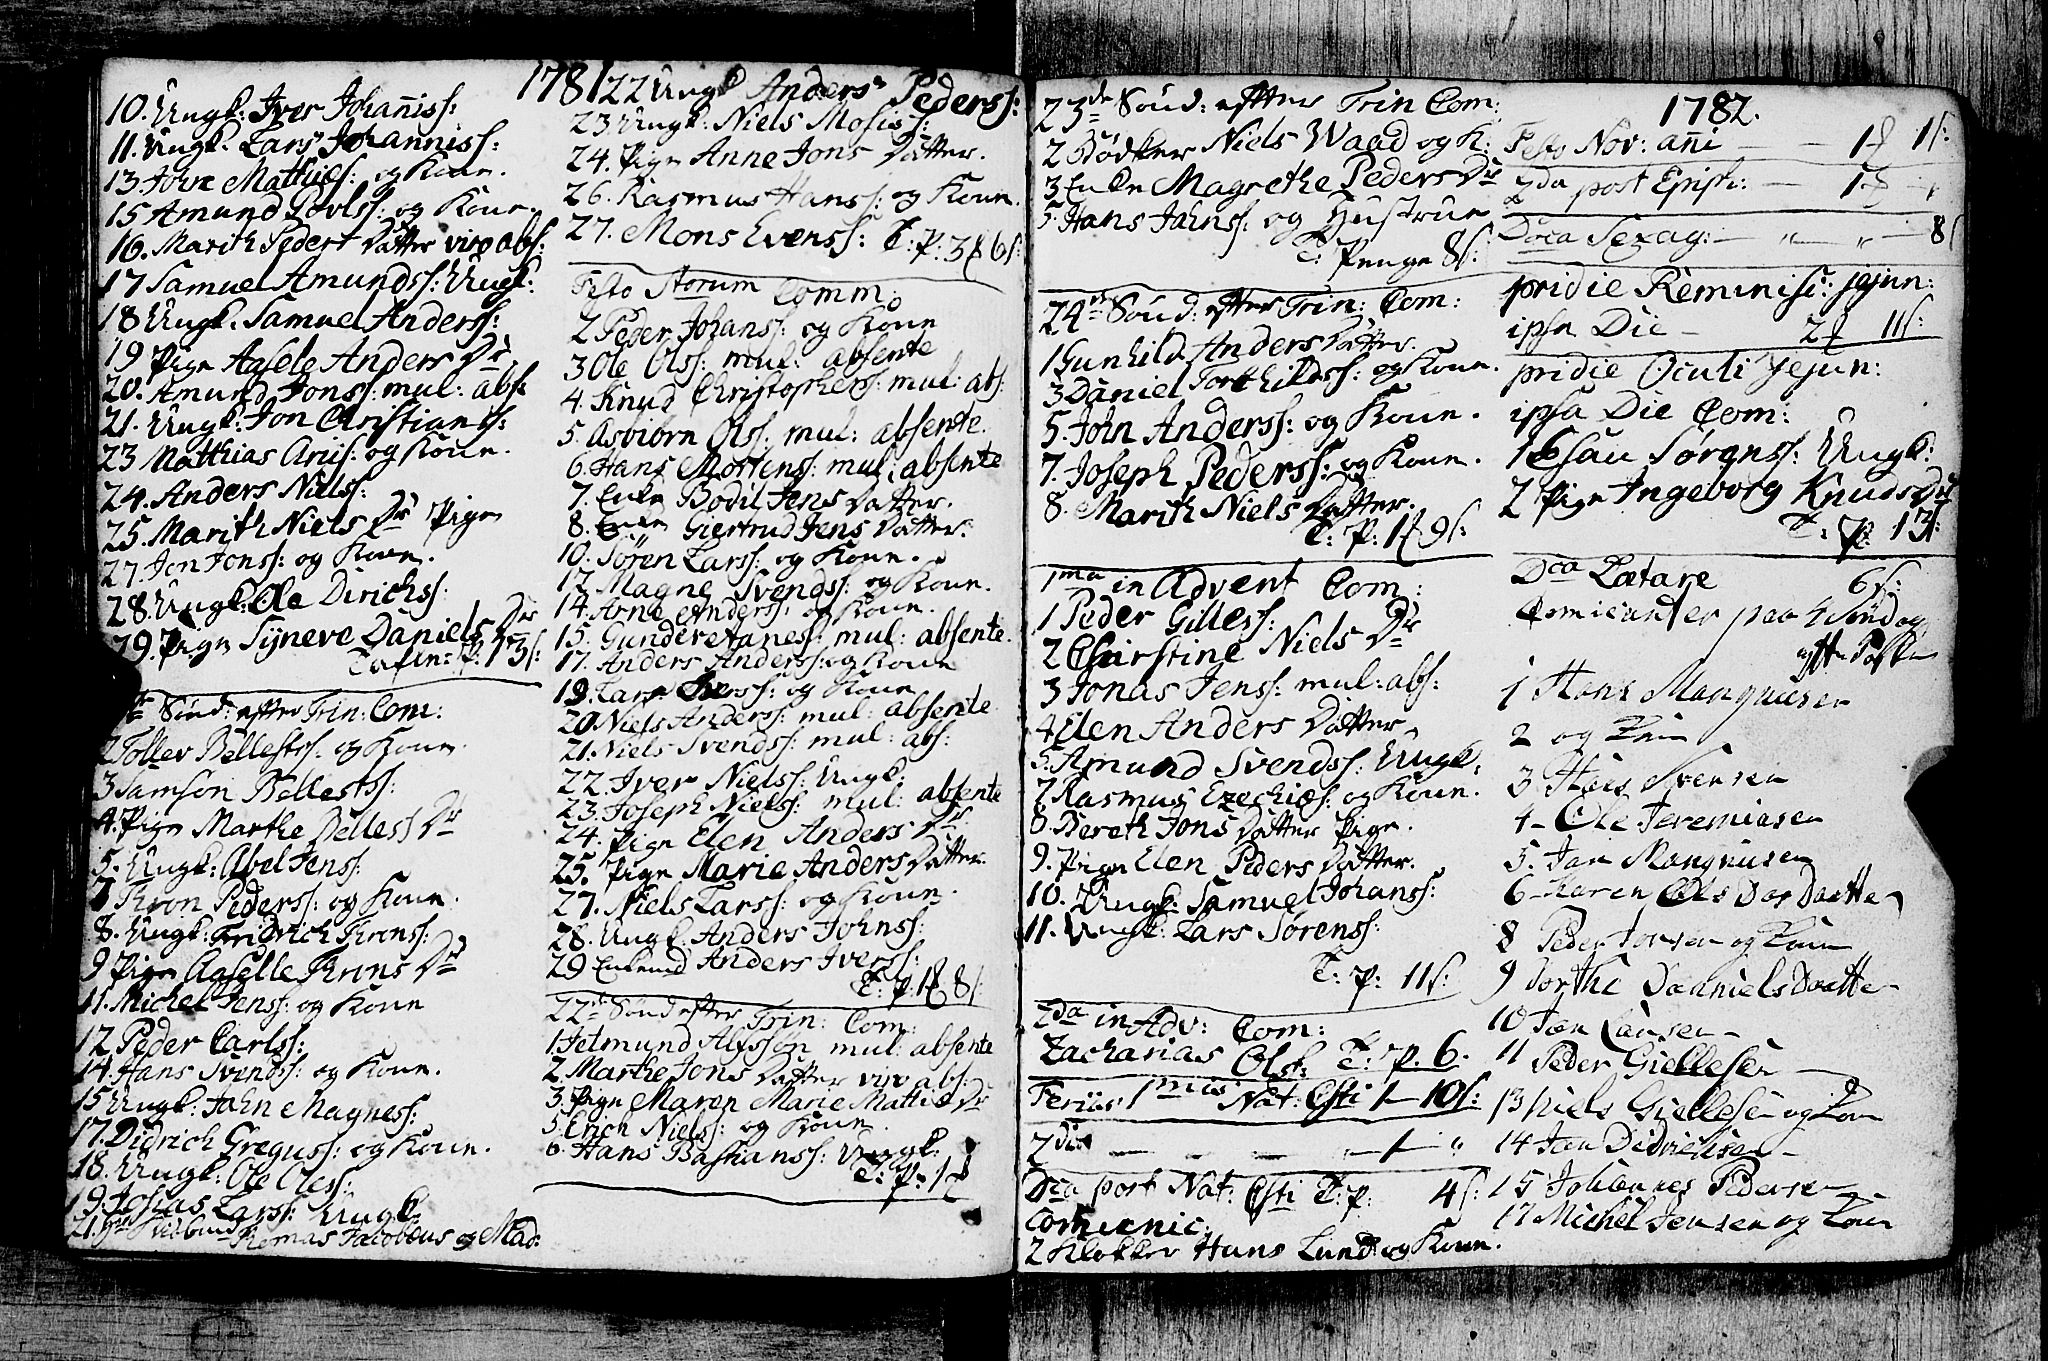 1781
10. Ungk: Iver Johanniss:
11. Ungk: Lars Johanniss:
13 Johre Mathies: og Kone.
15 Amund Povlss: og Kone.
16. Marith Peders Datter viro abs:
17 Samuel Amundss: Ungk:
18 Ungk. Samuel Anderss:
19 Pige Aasele Anders Dr
20. Amund Jonss: mul: abs:
21. Ungk: Jon Christians:
23 Matthias Ariis: og Kone.
24. Anders Nielss:
25. Marith Niels Dr Pige
27. Jon Jonss: og Kone.
28. Ungk: Ole Dirichss:
29. Pige Syneve Daniels Dr
P. 1 3 s:
Sönd: efter Trin: Com:
2 Tollev Bellestss: og Kone.
3 Samson Bellestss:
4. Pige Marthe Belless Dr
5. Ungk: Abel Jenss:
7 Thron Pederss: og Kone.
8. Ungk: Fridrich Thronss:
9 Pige Aaselle Throns Dr
11. Michel Jenss: og Kone
12 Peder Carlss:
14. Hans Svendss: og Kone.
15 Ungk: John Magness:
17. Didrich Greguss: og Kone.
18. Ungk: Ole Oless:
19. Josias Larss: Ungk
21. Thomas Jacobæus og Mad:
22 Ungk Anders Pederss:
23 Ungk: Niels Mosiss:
24. Pige Anne Jons Datter.
26. Rasmus Hanss: og Kone.
27. Mons Evenss: T: P: 3 6 s:
Festo Storum Comm:
2 Peder Johanss: og Kone
3 Ole Olss: mul: absente
4. Knud Christophers: mul: abs:
5. Asbiørn Olss: mul: absente.
6. Hans Mortenss: mul: absente
7. Enke Bodil Jens Datter.
8. Enke Giertrud Jens Datter.
10. Sören Larss: og Kone.
12. Magne Svendss: og Kone.
14. Arne Anderss: og Kone.
15. Gunder Aaness: mul: absente.
17. Anders Anderss: og Kone
19. Lars Iverss: og Kone
20. Niels Anderss: mul: absente
21. Niels Svendss: mul: abs:
22. Iver Nielss: Ungk:
23. Joseph Nielss: mul: absente
24. Pige Elen Anders Dr
25. Pige Marie Anders Datter.
27. Niels Larss: og Kone.
28. Ungk. Anders Johnss:
29 Enkemd Anders Iverss:
T: P: 1 8 s:
22de Sönd efter Trin: Com:
1. Jetmund Alfsson mul: absente
2 Marthe Jons Datter viro abs:
3. Pige Maren Marie Mattis Dr
5. Erich Nielss: og Kone.
6. Hans Bastianss: Ungk:
T: P: 1
23de Sönd: efter Trin Com:
2 Bödker Niels Waad og K:
3 Enke Magrethe Peders Dr
5. Hans Jahnss: og Hustrue
T: Penge 8 s:
24de Sönd: efter Trin: Com:
1 Gunhild Anders Datter.
3 Daniel Torkhildss: og Kone.
5. John Anderss: og Kone.
7. Joseph Pederss: og Kone.
8. Marith Niels Datter.
T: P: 1 9 s:
1ma in Advent Com:
1 Peder Gilless:
2 Christine Niels Dr
3 Jonas Jenss: mul: abs:
4 Elen Anders Datter
5. Amund Svendss: Ungk.
7 Rasmus Ezechies: og Kone.
8. Bereth Jons Datter Pige.
9. Pige Elen Peders Datter.
10. Ungk: Samuel Johanss:
11. Ungk. Lars Sörenss:
T: P: 11 s:
2da in Adv: Com:
Zacharias Olss: T: P. 6.
Feriis 1mis Nat: Xsti 1 10 s:
2dis — — — 1 "
Dca post Nat: Xsti T: P: 4 s:
Comunic:
2 Klokker Hans Lund og Kone.
1782.
Festo Nov: anni — — 1 1 s:
2da post Epiph: — 1 "
Dca Sexag: — " — " — 8 s
pridie Reminisc: jejun:
ipsa Die — 2 11 s:
pridie Oculi Jejun:
ipsa Die Com:
1 Esau Sørenss: Ungk:
2 Pige Ingeborg Knuds Dr
T: P: 13 s:
Dca Lætare 6 s:
Comicanter paa 4 Söndag
efter Paaske
1 Hans Mangnusen
2 og Kone
3 Hans Svensen
4 - Ole Jeremiasen
5. Jan Mangnusen
6 - Karen Ols Dotter
8 Peder Jonsen og Kone
9 Dorthe Danniels Datter
10 Jan Larsen
11 Peder Giellesen
13 Niels Giellesen og Kone
14 Jan Didrichsen
15 Johannes Pedersen
17 Michel Jensen og Kone